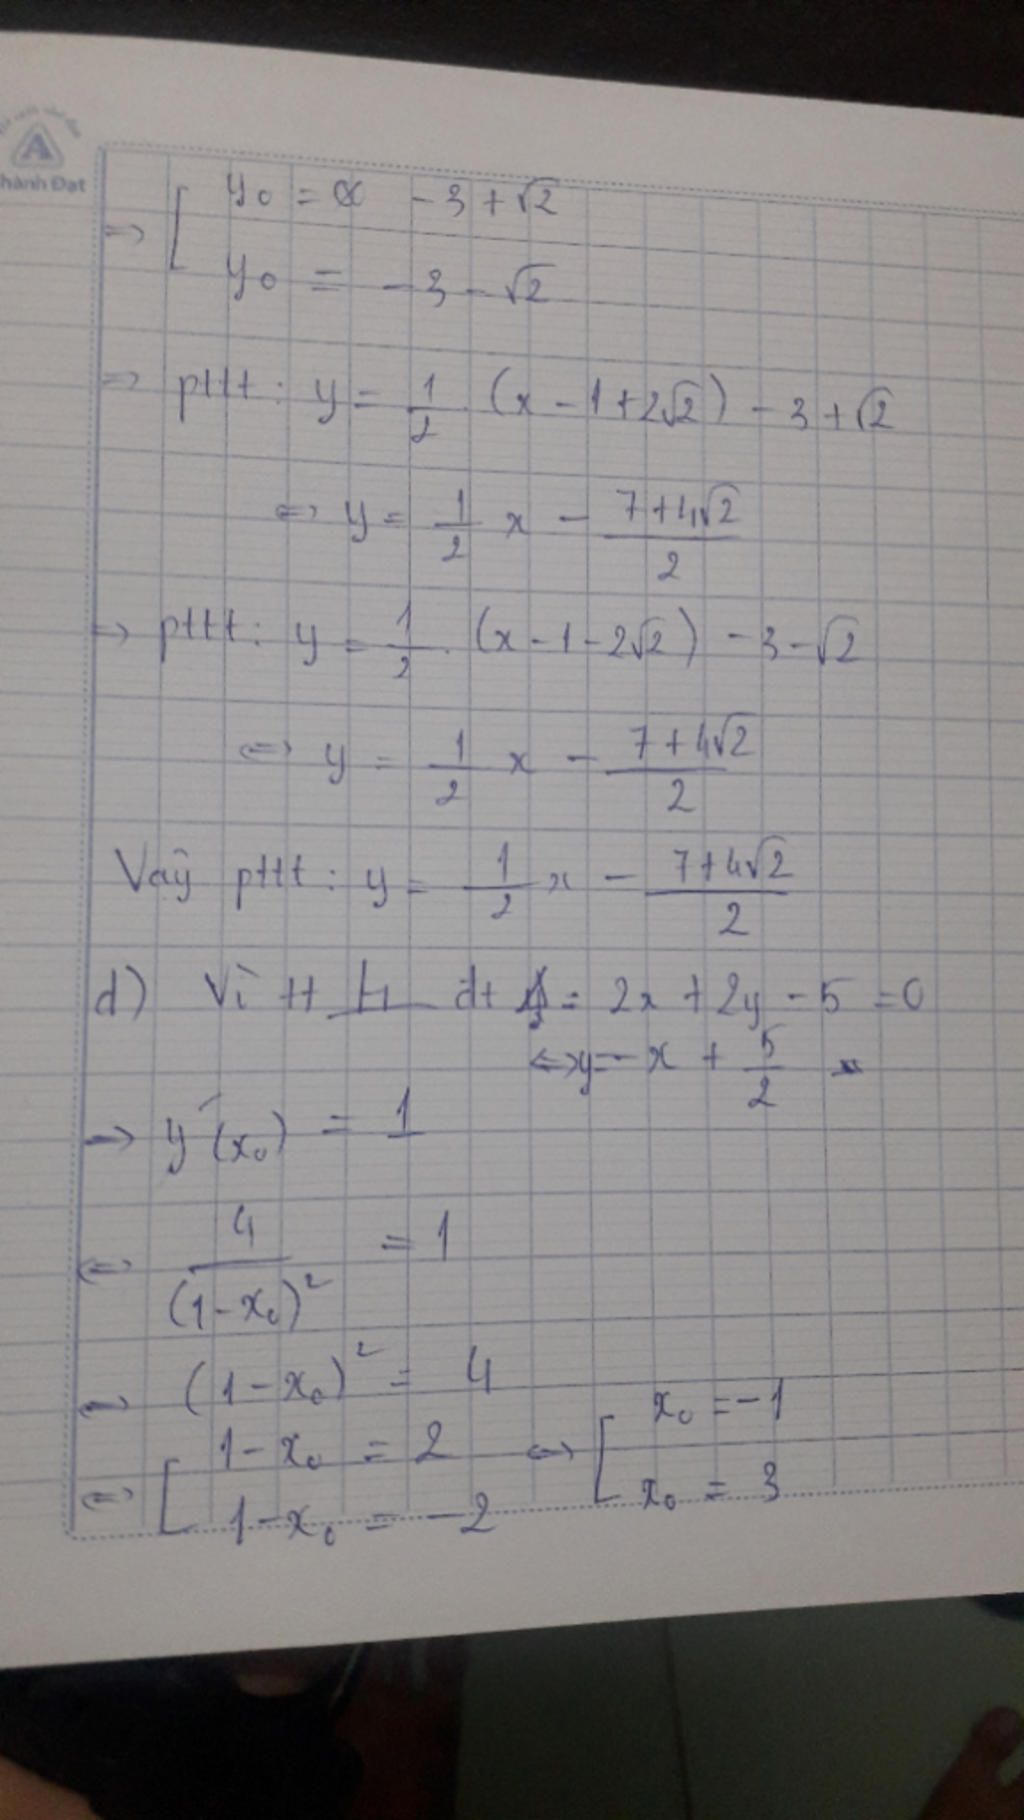 A
hành Đạt
⇒ [ y₀ = -3 + √2
y₀ = -3 - √2
⇒ pttt: y = 1/2 . (x - 1 + 2√2) - 3 + √2
⇔ y = 1/2 x - (7 + 4√2)/2
⇒ pttt: y = 1/2 . (x - 1 - 2√2) - 3 - √2
⇔ y = 1/2 x - (7 + 4√2)/2
Vậy pttt: y = 1/2 x - (7 + 4√2)/2
d) Vì tt ⊥ đt Δ = 2x + 2y - 5 = 0
⇔ y = -x + 5/2
⇒ y'(x₀) = 1
⇔ 4/(1 - x₀)² = 1
⇔ (1 - x₀)² = 4
⇔ [ 1 - x₀ = 2 ⇔ [ x₀ = -1
1 - x₀ = -2 x₀ = 3